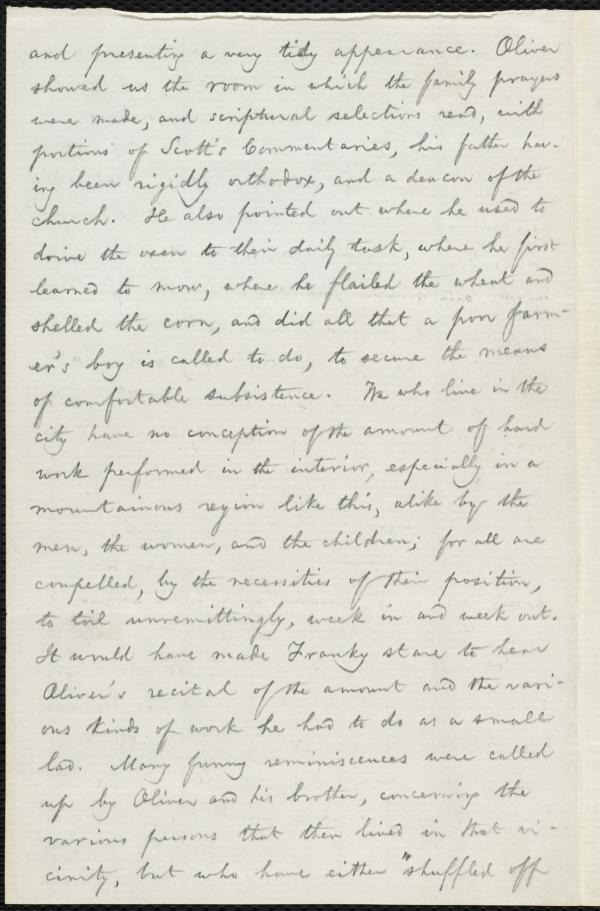 and presenting a very tidy appearance. Oliver
showed us the room in which the family prayers
were made, and scriptural selections read, with
portions of Scott's Commentaries, his father hav-
ing been rigidly orthodox, and a deacon of the
church. He also pointed out where he used to
drive the oxen to their daily task, where he first
learned to mow, where he flailed the wheat and
shelled the corn, and did all that a poor farm-
er's boy is called to do, to secure the means
of comfortable subsistence. We who live in the
city have no conception of the amount of hard
work performed in the interior, especially in a
mountainous region like this, alike by the
men, the women, and the children; for all are
compelled, by the necessities of their position,
to toil unremittingly, week in and week out.
It would have made Franky stare to hear
Oliver's recital of the amount and the vari-
ous kinds of work he had to do as a small
lad. Many funny reminiscences were called
up by Oliver and his brother, concerning the
various persons that then lived in that vi-
cinity, but who have either "shuffled off